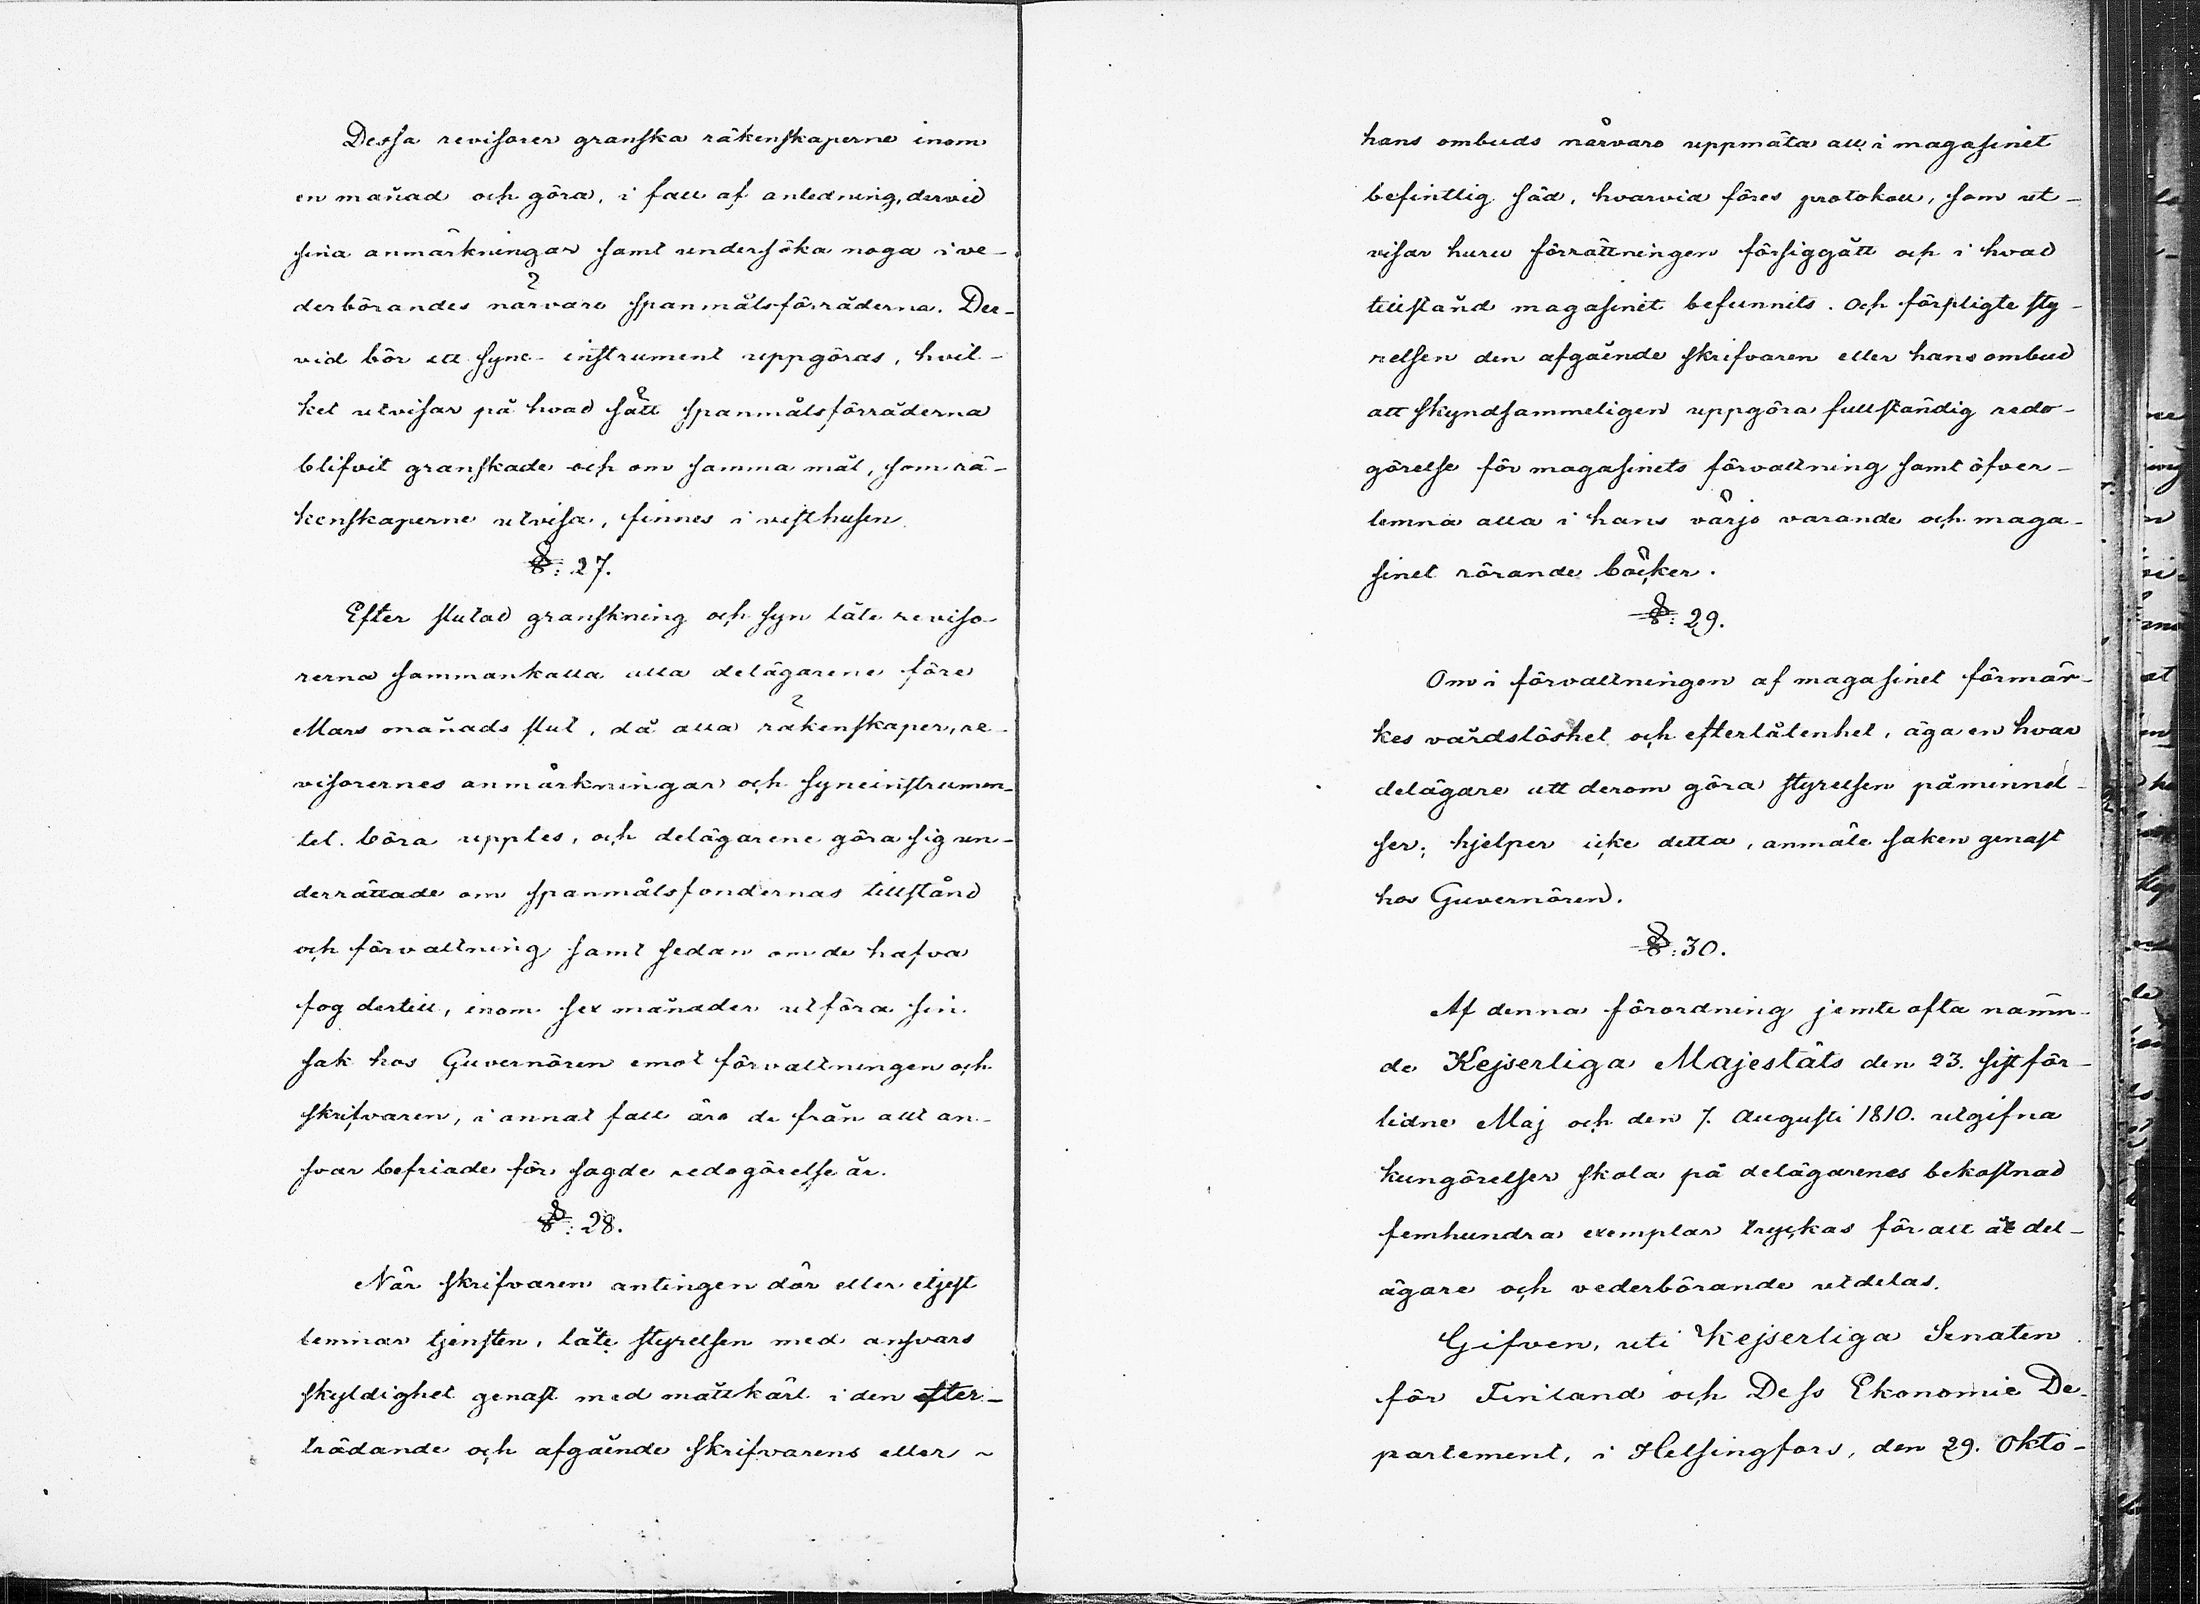 Dessa revisorer granska räkenskaperne inom
en månad och göra, i fall af anledning, dervid
sina anmärkningar samt undersöka noga i ve-
derbörandes närvaro spanmålsförråderna. Der-
vid bör ett syne-instrument uppgöras, hvil-
ket utvisar på hvad sätt spanmålsförråderna
blifvit granskade och om samma mål, som rä-
kenskaperne utvisa, finnes i visthusen.
§: 27.
Efter slutad granskning och syn låte reviso-
rerna sammankalla alla delägarene före
Mars månads slut, då alla räkenskaper, re-
visorernes anmärkningar och syneinstrumen-
tet böra upples, och delägarene göra sig un-
derrättade om spanmålsfondernas tillstånd
och förvaltning samt sedan om de hafva
fog dertill, inom sex månader utföra sin
sak hos Guvernören emot förvaltningen och
skrifvaren, i annat fall äro de från allt an-
svar befriade för sagde redogörelse år.
§: 28.
När skrifvaren antingen dör eller eljest
lemnar tjensten, låte styrelsen med ansvars
skyldighet genast med måttkärl i den efter-
trädande och afgående skrifvarens eller ~
hans ombuds närvaro uppmäta all i magasinet
befintlig säd, hvarvid föres protokoll, som ut-
visar huru förrättningen försiggått och i hvad
tillstånd magasinet befunnits. Och förpligte sty-
relsen den afgående skrifvaren eller hans ombud
att skyndsammeligen uppgöra fullständig redo-
görelse för magasinets förvaltning samt öfver-
lemna alla i hans värjo varande och maga-
sinet rörande böcker.
§: 29.
Om i förvaltningen af magasinet förmär-
kes vårdslöshet och efterlåtenhet, äga en hvar
delägare att derom göra styrelsen påminnel-
ser; hjelper icke detta, anmäle saken genast
hos Guvernören.
§: 30.
Af denna förordning jemte ofta nämn-
de Kejserliga Majestäts den 23. sistför-
lidne Maj och den 7. Augusti 1810. utgifna
kungörelser skola på delägarenes bekostnad
femhundra exemplar tryckas för att åt del-
ägare och vederbörande utdelas.
Gifven, uti Kejserliga Senaten
för Finland och Dess Ekonomie De-
partement, i Helsingfors, den 29. Okto-